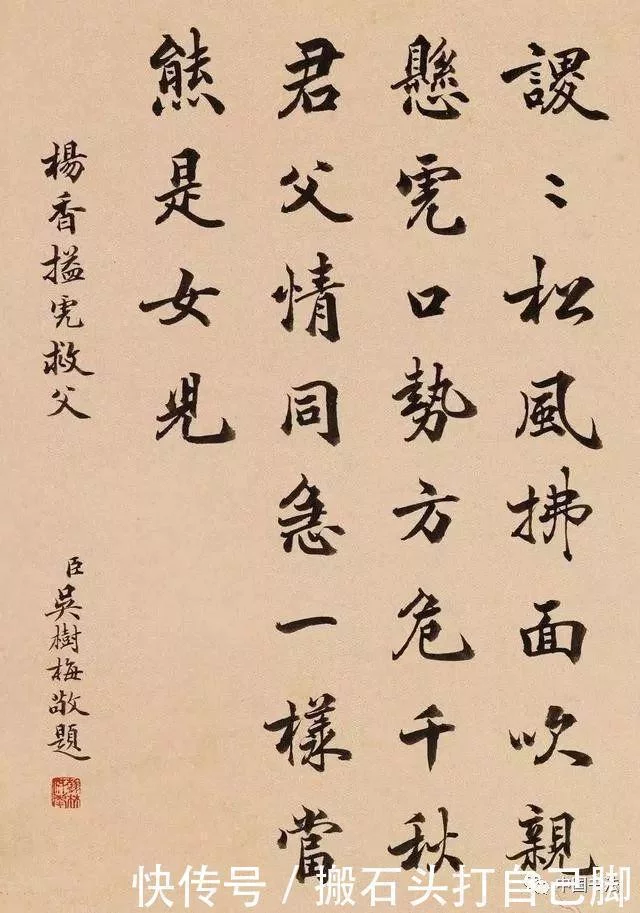 謖〻松風拂面吹親
懸虎口勢方危千秋
君父情同急一樣當
熊是女兒
楊香搤虎救父
臣吳樹梅敬題
快传号 / 搬石头打自己脚
中国书法